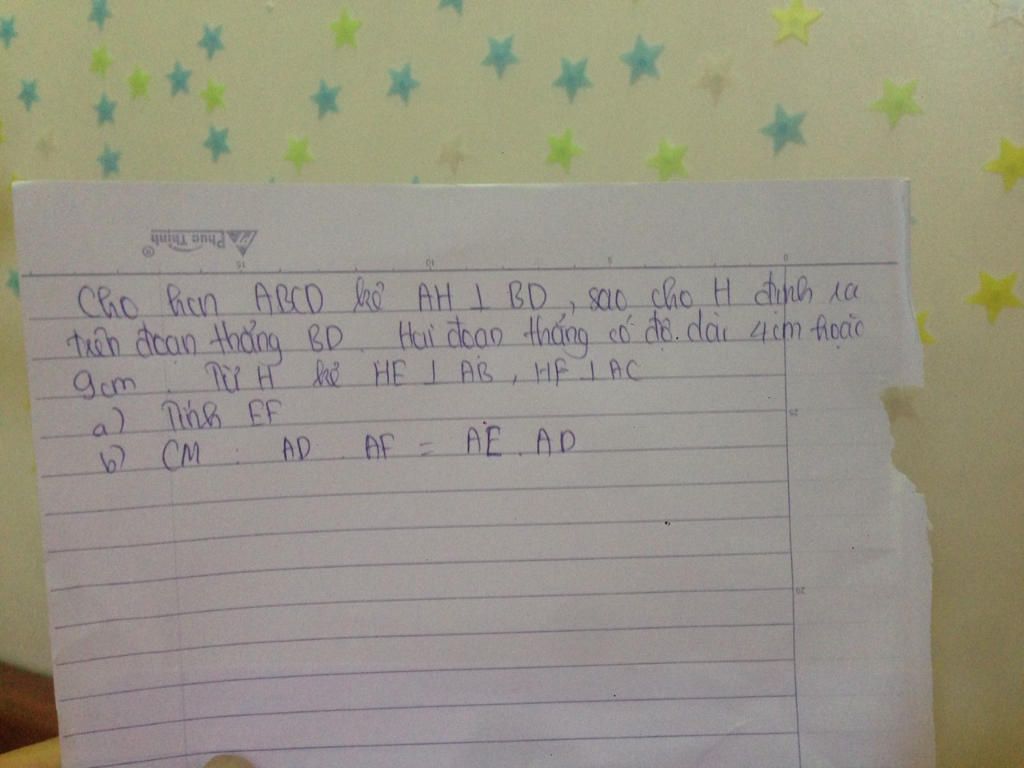 ® Phuc Thinh
15 10 5 0
Cho hcn ABCD kẻ AH ⊥ BD, sao cho H định ra
trên đoạn thẳng BD. Hai đoạn thẳng có độ dài 4cm hoặc
9cm. Từ H kẻ HE ⊥ AB, HF ⊥ AC
a) Tính EF
b) CM: AD. AF = AE. AD
25
20